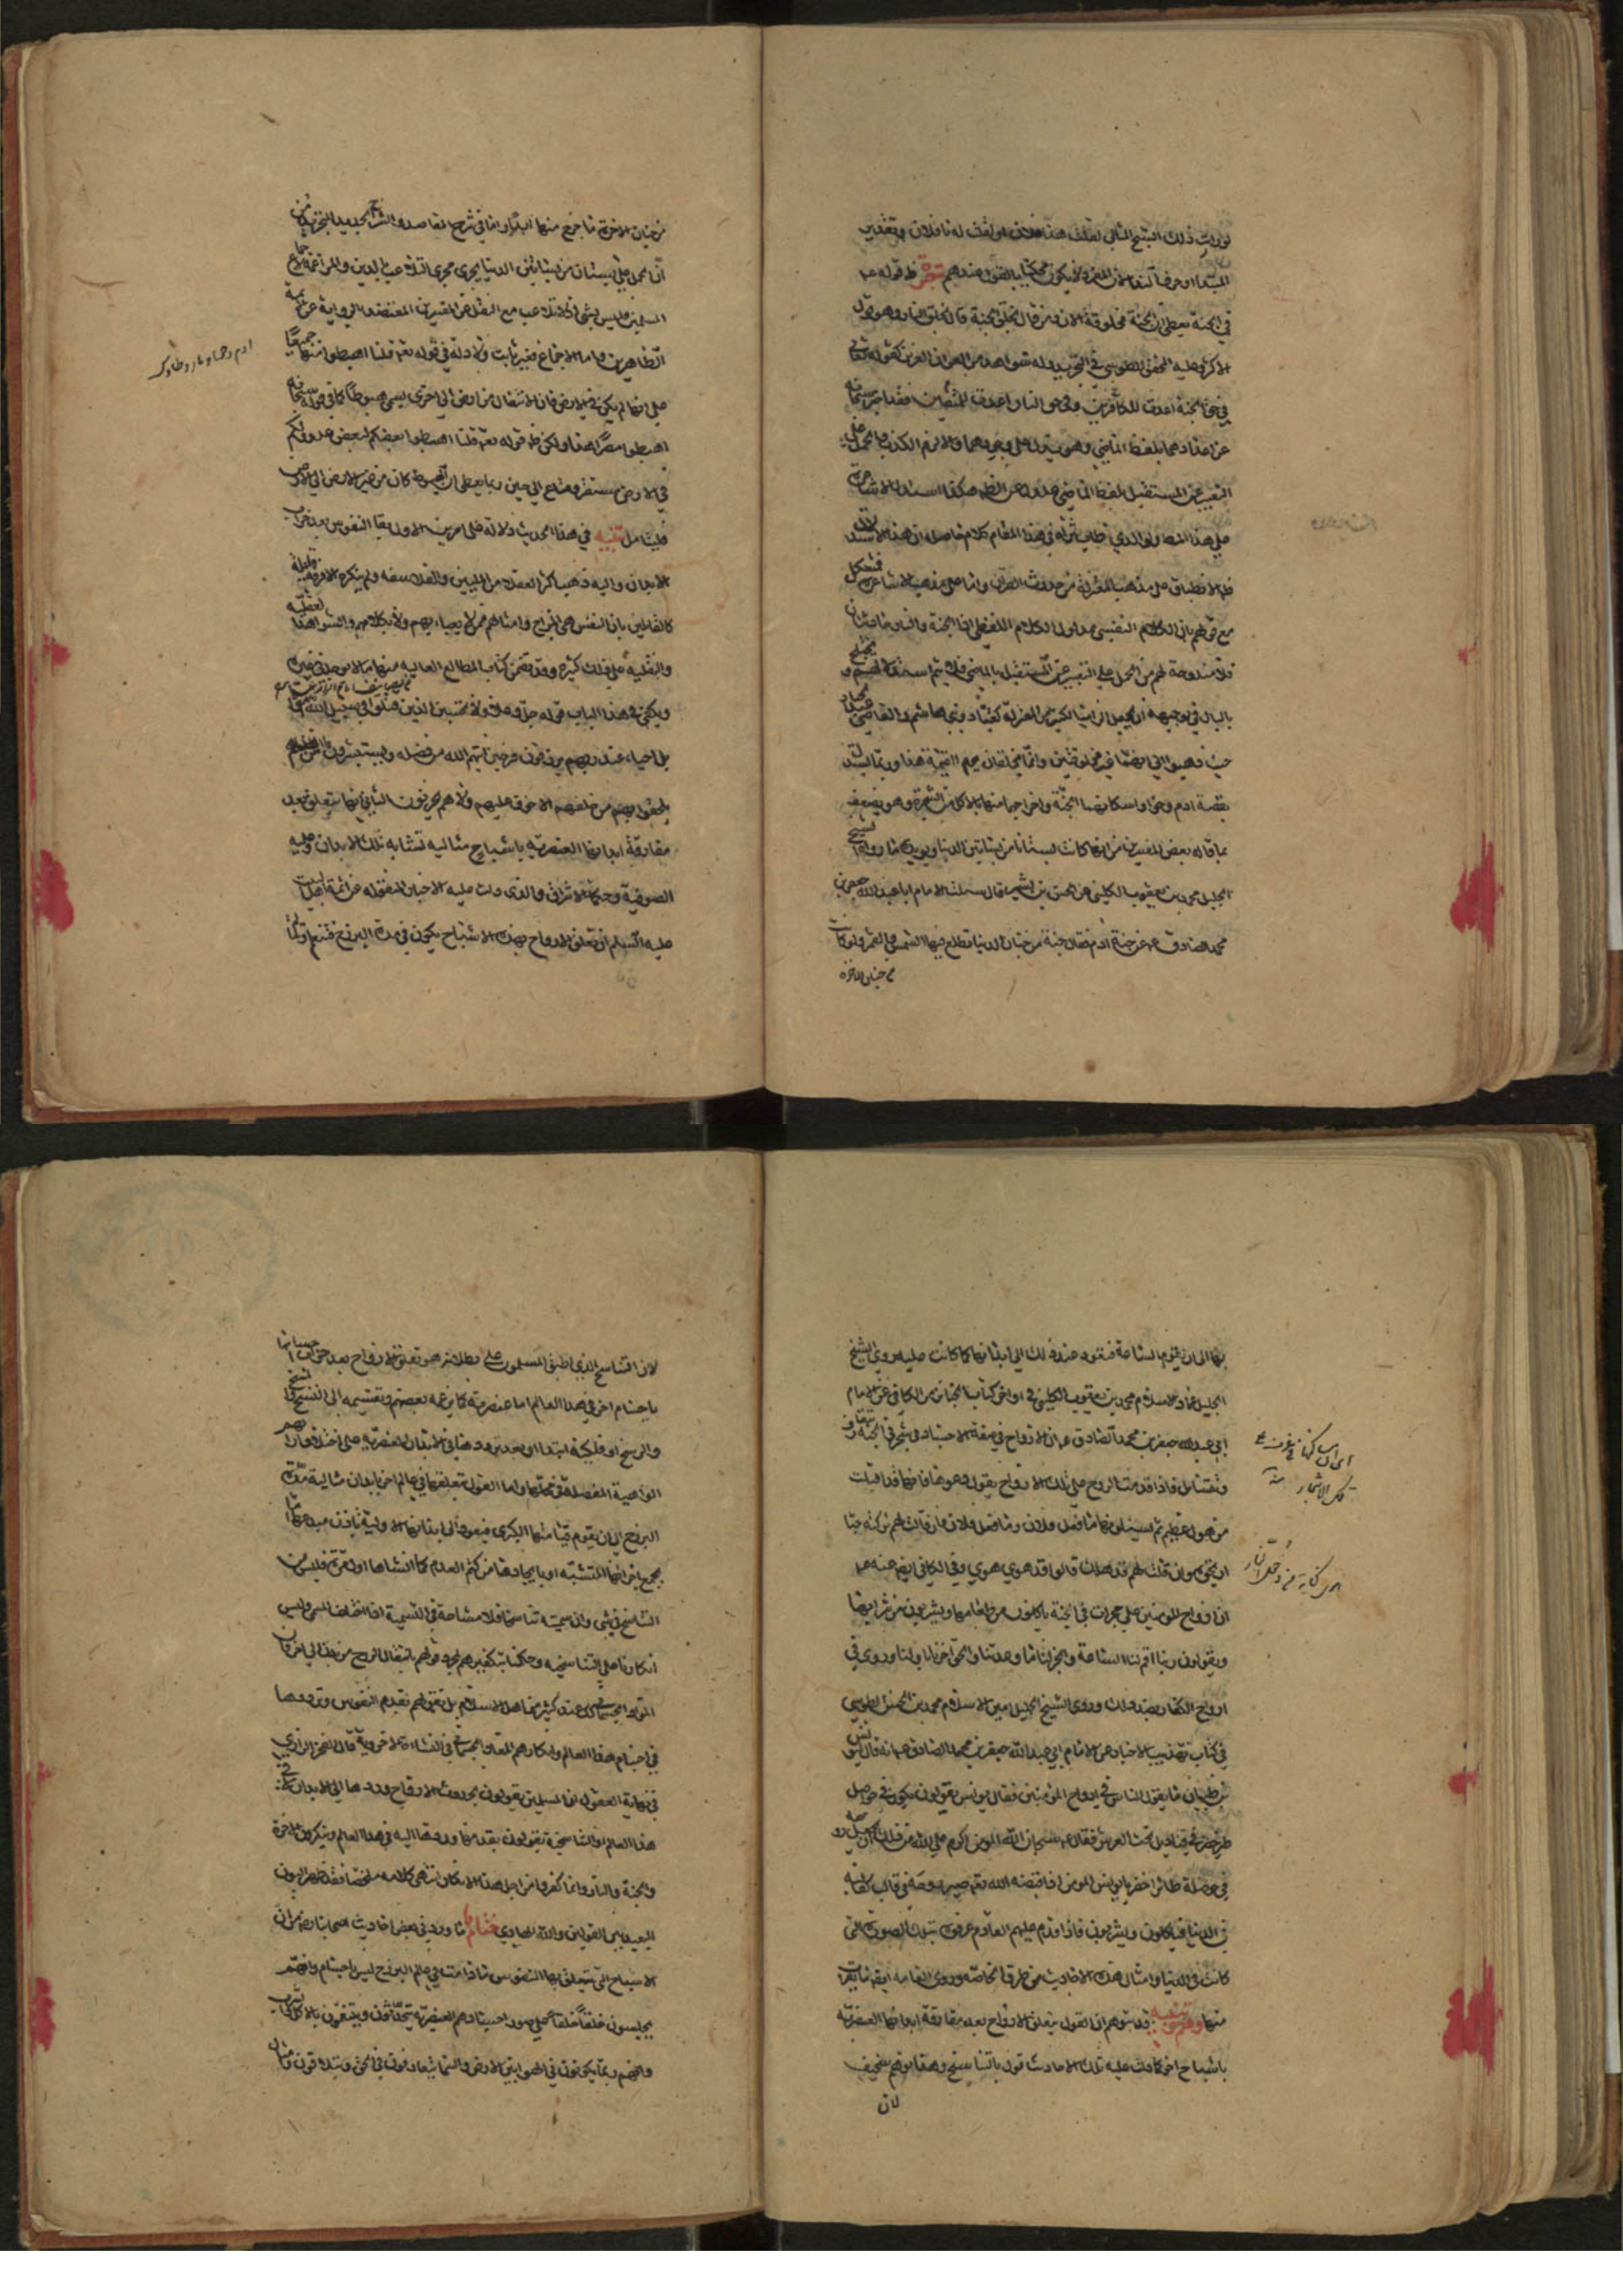 لو رأيت ذلك الشبح المثالي لقلت هذا فلان
المبتدا
في الجنة يعطي ان الجنة مخلوقة الان فمن قال بخلق الجنة قال بخلق النار وهو قول
الاكثر وعليه المحقق الطوسي في التجريد وله شواهد من القرآن العزيز كقوله تعالى
في حق الجنة اعدت للمتقين وفي حق النار اعدت للكافرين فقد اخبر سبحانه
عن اعدادهما بلفظ الماضي وهو يدل على وجودهما والا لزم الكذب والحمل على
التعبير عن المستقبل بلفظ الماضي عدول عن الظاهر هكذا استدل الاشاعرة
على هذا المطلب والذي طاب ثراه في هذا المقام كلام حاصله ان هذا الاستدلال
ظاهر الانطباق على مذهب المعتزلة من حدوث القرآن واما على مذهب الاشاعرة فمشكل
مع قولهم بان الكلام النفسي مدلول الكلام اللفظي اذا الجنة والنار حادثتان
فلا مندوحة لهم من الحمل على التعبير عن المستقبل بالماضي فلا يتم استدلالهم و يختلج
بالبال في توجيهه ان يجعل الزاميا لكثير من المعتزلة كعباد وابي هاشم والقاضي عبد الجبار
حيث ذهبوا الى انهما غير مخلوقتين وانما يخلقان يوم القيمة هذا وربما يستدل
بقصة ادم وحوا واسكانهما الجنة واخراجهما منها بالاكل من الشجرة وهو ضعيف
بما قاله بعض المفسرين من انها كانت بستانا من بساتين الدنيا ويؤيده ما رواه الشيخ
الجليل محمد بن يعقوب الكليني عن الحسن بن بشير قال سالت الامام ابا عبد الله جعفر بن
محمد الصادق عم عن جنة ادم فقال جنة من جنان الدنيا تطلع فيها الشمس والقمر ولو كانت
من جنان الاخرة
من جنان الاخرة ما خرج منها ابدا واما في شرح المقاصد والشرح الجديد للتجريد من
ان حمل الجنة على بستان من بساتين الدنيا يجري مجرى التلاعب بالدين والمراغمة لاجماع
المسلمين فليس بشئ اذ لا تلاعب مع النقل عن المفسرين المعتضد بالرواية عن الائمة
الطاهرين واما الاجماع فغير ثابت ولا دلالة في قوله تعم قلنا اهبطوا منها جميعا
على انها لم تكن في الارض فان الانتقال من ارض الى اخرى يسمى هبوطا كما في قوله سبحانه
اهبطوا مصرا هذا ولكن قوله تعم قلنا اهبطوا بعضكم لبعض عدو ولكم
في الارض مستقر ومتاع الى حين ربما يعطي ان الهبوط كان من غير الارض الى الارض
فليتامل تنبيه في هذا الحديث دلالة على امرين الاول بقاء النفوس بعد خراب
الابدان واليه ذهب اكثر العقلاء من المليين والفلاسفة ولم ينكره الا فرقة قليلة
كالقائلين بان النفس هي المزاج وامثالهم ممن لا يعبأ بهم ولا بكلامهم والشواهد العقلية
والنقلية على ذلك كثيرة وقد تضمن كتاب المطالب العالية منها ما لا يوجد في غيره
ويكفي في هذا الباب قوله جل وعلا ولا تحسبن الذين قتلوا في سبيل الله امواتا
بل احياء عند ربهم يرزقون فرحين بما اتيهم الله من فضله ويستبشرون بالذين لم
يلحقوا بهم من خلفهم الا خوف عليهم ولا هم يحزنون الثاني انها تتعلق بعد
مفارقة ابدانها العنصرية باشباح مثالية تشابه تلك الابدان وعليه
الصوفية وحكماء الاشراق والذي دلت عليه الاخبار المنقولة عن ائمة اهل البيت
عليهم السلم ان تعلق الارواح بهذه الاشباح يكون في مدة البرزخ فتتنعم او تتألم
بها الى ان تقوم الساعة فتعود عند ذلك الى ابدانها كما كانت عليه روى الشيخ
الجليل عماد الاسلام محمد بن يعقوب الكليني في اواخر كتاب الجنائز من الكافي عن الامام
ابي عبد الله جعفر بن محمد الصادق عم ان الارواح في صفة الاجساد في شجر في الجنة تتعارف
وتتسائل فاذا قدمت الروح على تلك الارواح يقول دعوها فانها قد اقبلت
من هول عظيم ثم يسئلونها ما فعل فلان وما فعل فلان فان قالت لهم تركته حيا
ارتجوه وان قالت لهم قد هلك قالوا قد هوى هوى وفي الكافي ايضا عنه عم
ان ارواح المؤمنين على حجرات في الجنة ياكلون من طعامها ويشربون من شرابها
ويقولون ربنا اقم لنا الساعة وانجز لنا ما وعدتنا والحق اخرنا باولنا وروى في
ارواح الكفار بضد ذلك وروى الشيخ الجليل امين الاسلام محمد بن الحسن الطوسي
في كتاب تهذيب الاخبار عن الامام ابي عبد الله جعفر بن محمد الصادق عم انه قال ليونس
بن ظبيان ما يقول الناس في ارواح المؤمنين فقال يونس يقولون تكون في حواصل
طير خضر في قناديل تحت العرش فقال عم سبحان الله المؤمن اكرم على الله من ذلك ان يجعل روحه
في حوصلة طائر اخضر يا يونس المؤمن اذا قبضه الله تعم صير روحه في قالب كقالبه
في الدنيا فياكلون ويشربون فاذا قدم عليهم القادم عرفوه بتلك الصورة التي
كانت في الدنيا وامثال هذه الاحاديث من طرق الخاصة وروى العامة ايضا ما يقرب
منها وهم وتنبيه قد يتوهم ان القول بتعلق الارواح بعد مفارقة ابدانها العنصرية
باشباح اخر كما دلت عليه تلك الاحاديث قول بالتناسخ وهذا توهم سخيف
لان
لان التناسخ الذي اطبق المسلمون على بطلانه هو تعلق الارواح بعد خراب اجسادها
باجسام اخر في هذا العالم اما عنصرية كما يزعمه بعضهم ويقسمه الى النسخ والمسخ
والرسخ او فلكية ابتداء او بعد ترددها في الابدان العنصرية على اختلاف آرائهم
الواهية المفصلة في محلها واما القول بتعلقها في عالم اخر بابدان مثالية مدة
البرزخ الى ان تقوم قيامتها الكبرى فتعود الى ابدانها الاولية باذن مبدعها اما
بجمع اجزائها المتشتتة او بايجادها من كتم العدم كما انشاها اول مرة فليس من
التناسخ في شئ وان سميته تناسخا فلا مشاحة في التسمية اذا اختلف المسمى وليس
انكارنا على التناسخية وحكمنا بتكفيرهم بمجرد قولهم بانتقال الروح من بدن الى اخر فان
المعاد الجسماني كذلك عند كثير من اهل الاسلام بل بقولهم بقدم النفوس وترددها
في اجسام هذا العالم وانكارهم المعاد الجسماني في النشاة الاخروية قال الفخر الرازي
في نهاية العقول ان المسلمين يقولون بحدوث الارواح وردها الى الابدان لا في
هذا العالم والتناسخية يقولون بقدمها وردها اليه في هذا العالم وينكرون الاخرة
والجنة والنار وانما كفروا من اجل هذا الانكار انتهى كلامه ملخصا فقد ظهر البون
البعيد بين القولين والله الهادي ختام ما ورد في بعض احاديث اصحابنا رض من ان
الاشباح التي تتعلق بها النفوس ما دامت في عالم البرزخ ليست باجسام وانهم
يجلسون حلقا حلقا على صور اجسادهم العنصرية يتحدثون ويتنعمون بالاكل والشرب
وانهم ربما يكونون في الهواء بين الارض والسماء يتعارفون في الجو ويتلاقون وامثال